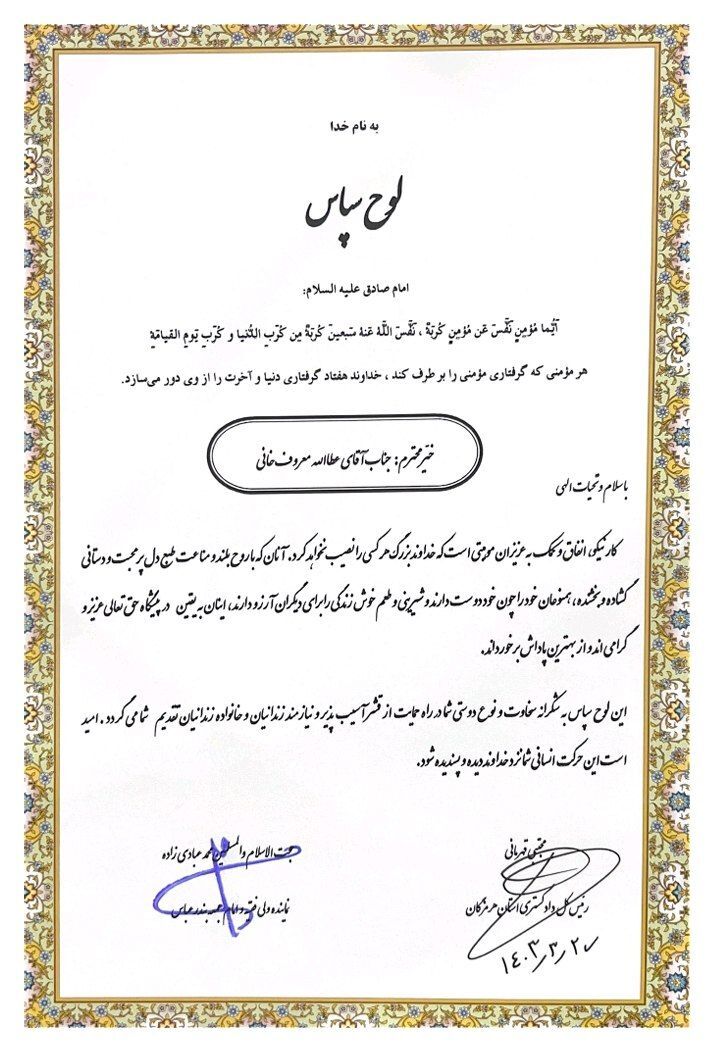 به نام خدا
لوح سپاس
امام صادق علیه السلام:
اَیُّما مُؤمِنٍ نَفَّسَ عَن مُؤمِنٍ کُربَةً ، نَفَّسَ اللَّهُ عَنهُ سَبعینَ کُربَةً مِن کُرَبِ الدُّنیا و کُرَبِ یَومِ القیامَةِ
هر مؤمنی که گرفتاری مؤمنی را بر طرف کند ، خداوند هفتاد گرفتاری دنیا و آخرت را از وی دور می‌سازد.
خیّر محترم: جناب آقای عطااله معروف خانی
با سلام و تحیات الهی
کار نیکو، انفاق و کمک به عزیزان موهبتی است که خداوند بزرگ هر کسی را نصیب نخواهد کرد. آنان که با روح بلند و مناعت طبع دل پر محبت و دستانی
گشاده و بخشنده، همنوعان خود را چون خود دوست دارند و شیرینی و طعم خوش زندگی را برای دیگران آرزو دارند، اینان به یقین در پیشگاه حق تعالی عزیز و
گرامی اند و از بهترین پاداش برخورداند.
این لوح سپاس به شکرانه سخاوت و نوع دوستی شما در راه حمایت از قشر آسیب پذیر و نیازمند زندانیان و خانواده زندانیان تقدیم شما می گردد . امید
است این حرکت انسانی شما نزد خداوند دیده و پسندیده شود.
مجتبی قهرمانی
رئیس کل دادگستری استان هرمزگان
۱۴۰۳/۳/۲۰
حجت الاسلام والمسلمین محمد عبادی زاده
نماینده ولی فقیه و امام جمعه بندرعباس